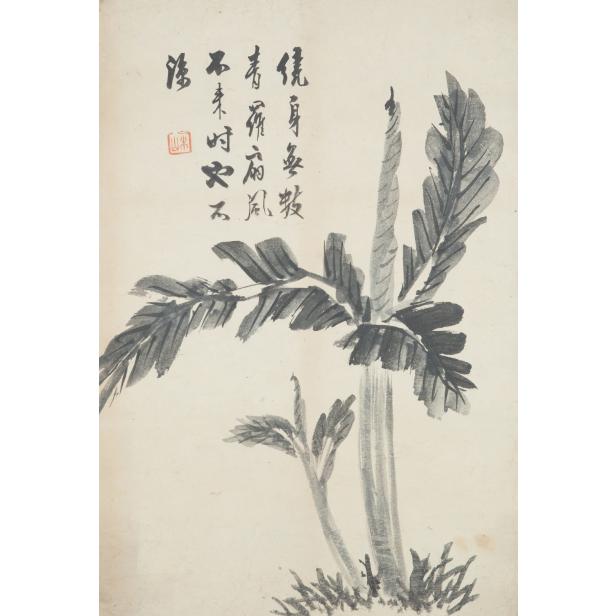 繞身無數
青羅扇風
不来时也不
涼